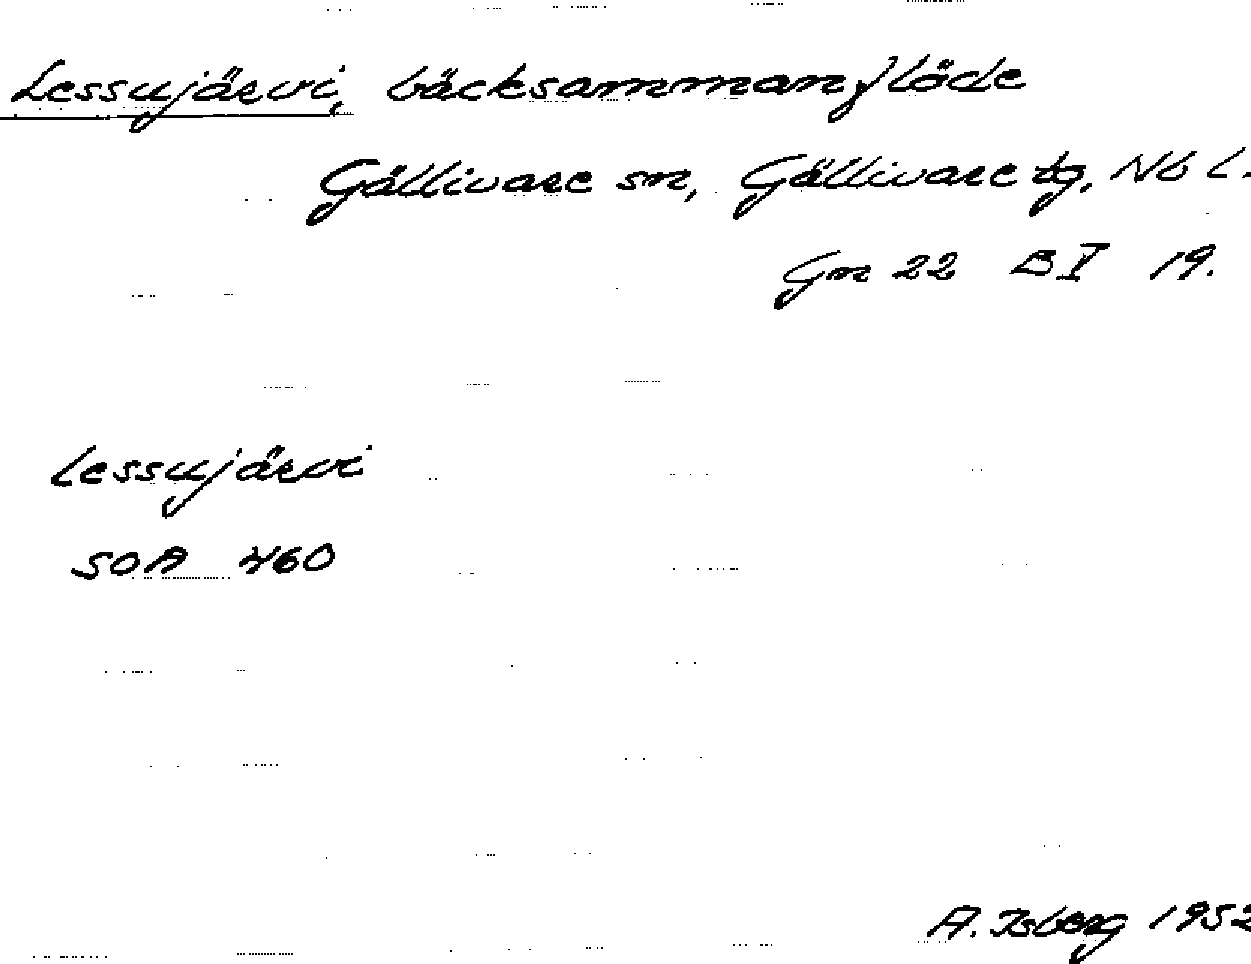 Lessujärvi, bäcksammanflöde
Gällivare sn, Gällivare tg, Nb L.
Gn 22 B V 19.
Lessujärvi
SOA 460
A. Isberg 1952